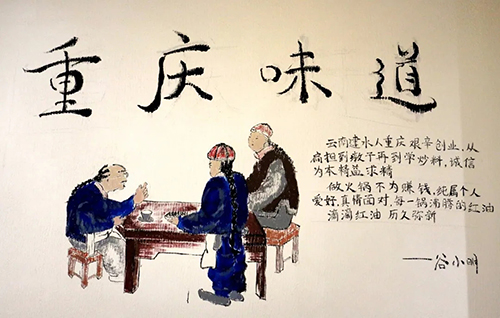 重庆味道
云南建水人重庆艰辛创业,从
扁担到墩子再到学炒料,诚信
为本精益求精
做火锅不为赚钱,纯属个人
爱好,真情面对,每一锅沸腾的红油
滴滴红油 历久弥新
——谷小明